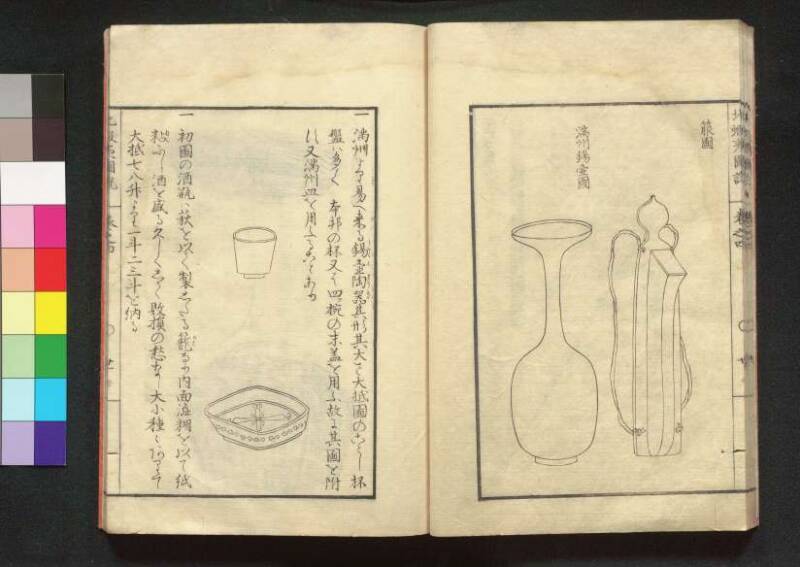 箙圖
満州錫壷圖
一 満州より易へ来る錫壷陶器其形其大さ大抵圖のことし杯
盤ハ多く本邦の杯又ハ四ツ椀の末蓋を用ふ故に其圖を附
に又満州皿を用ることもあり
一 初圖の酒瓶ハ萩を以て製したる籠なり内面塗糊を以て紙
粘ふし酒を盛る久しくして敗損の愁なし大小種々ありて
大抵七八升より一斗二三斗を納る